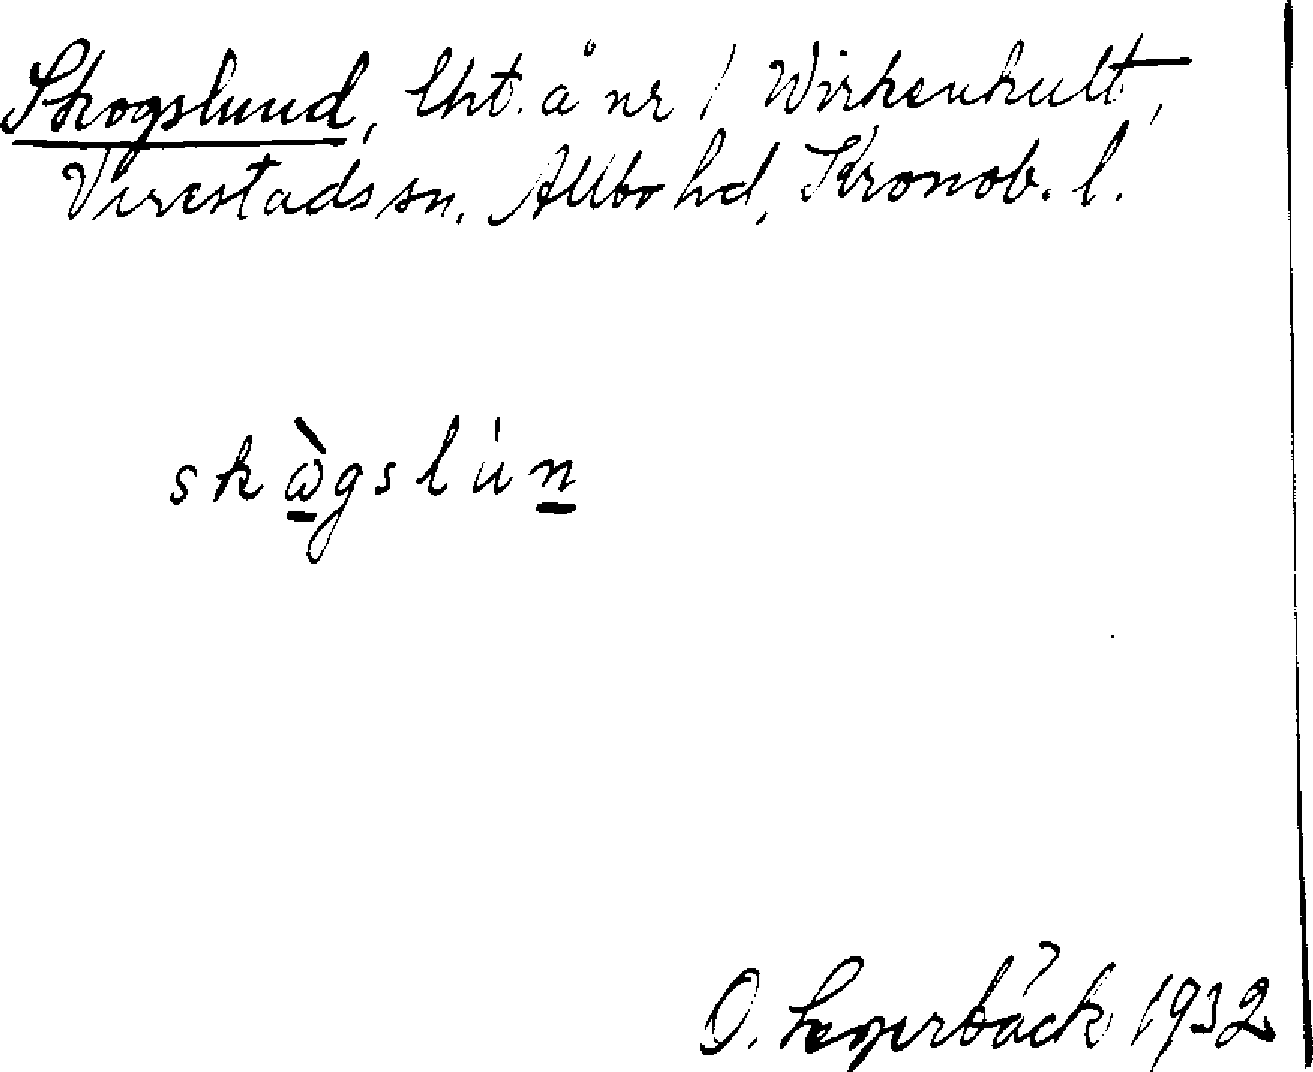 Skogslund, lht. å nr 1 Wirkenhult,
Virestads sn. Allbo hd, Kronob. l.
skὼgslu̍n
O. 1932